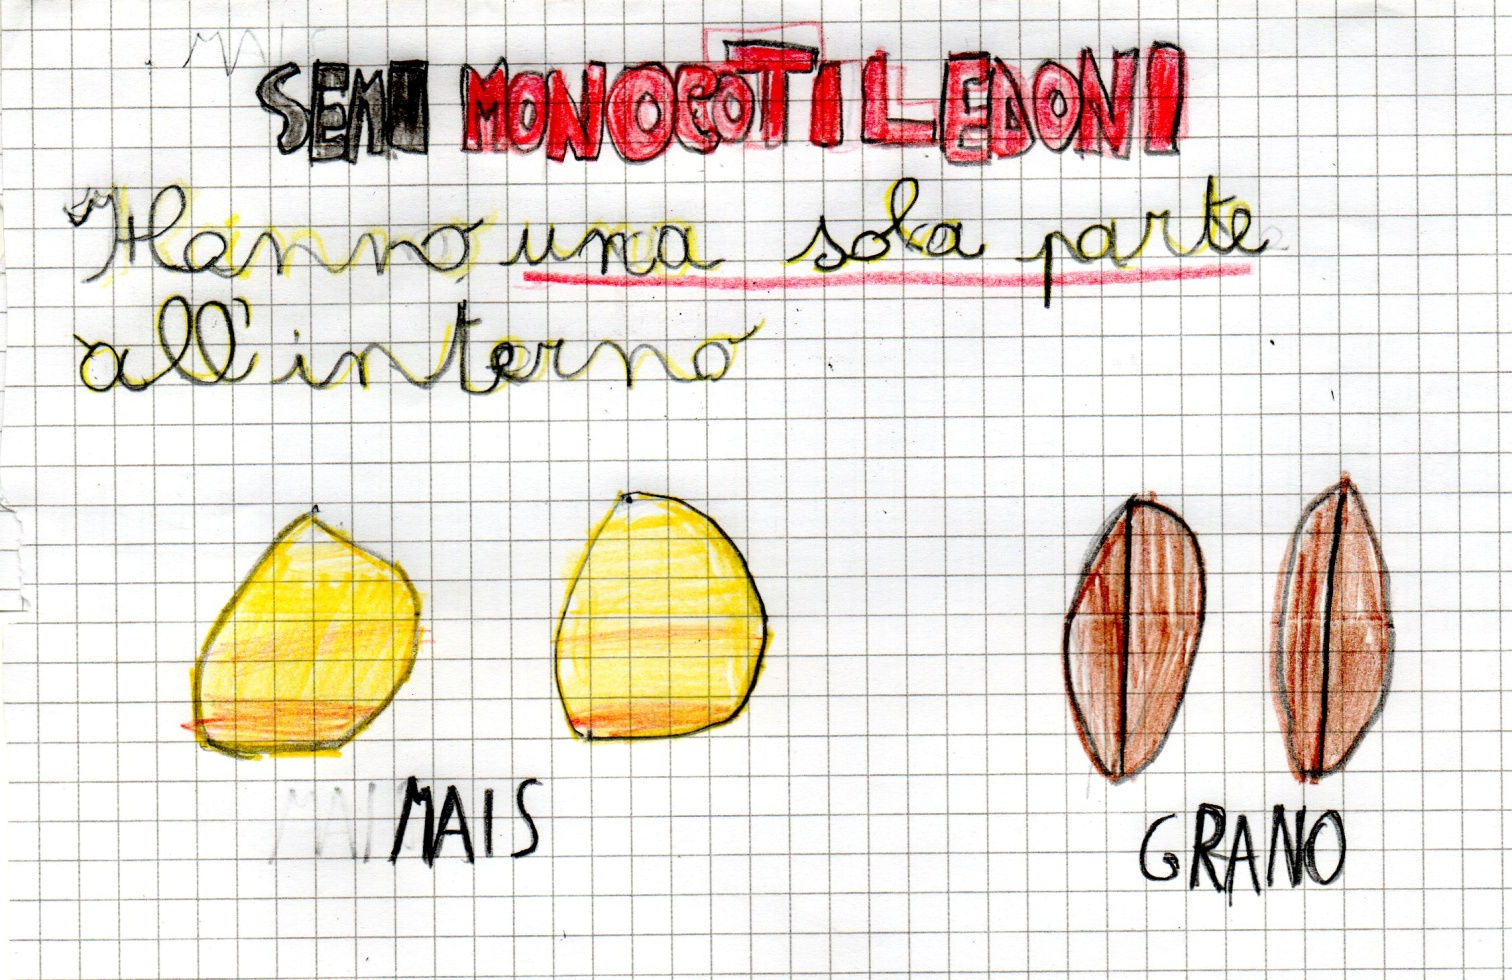 SEMI MONOCOTILEDONI
Hanno una sola parte
all'interno
MAIS
GRANO